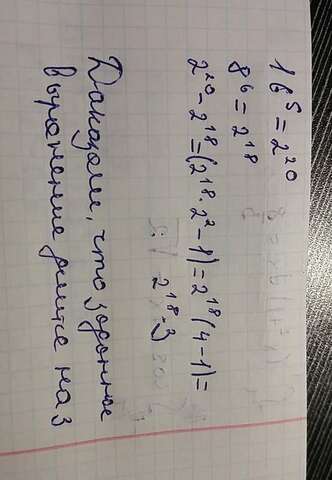 16⁵ = 2²⁰
8⁶ = 2¹⁸
2²⁰ - 2¹⁸ = (2¹⁸ · 2² - 1) = 2¹⁸ (4 - 1) =
2¹⁸ · 3
Доказали, что заданное
выражение делится на 3